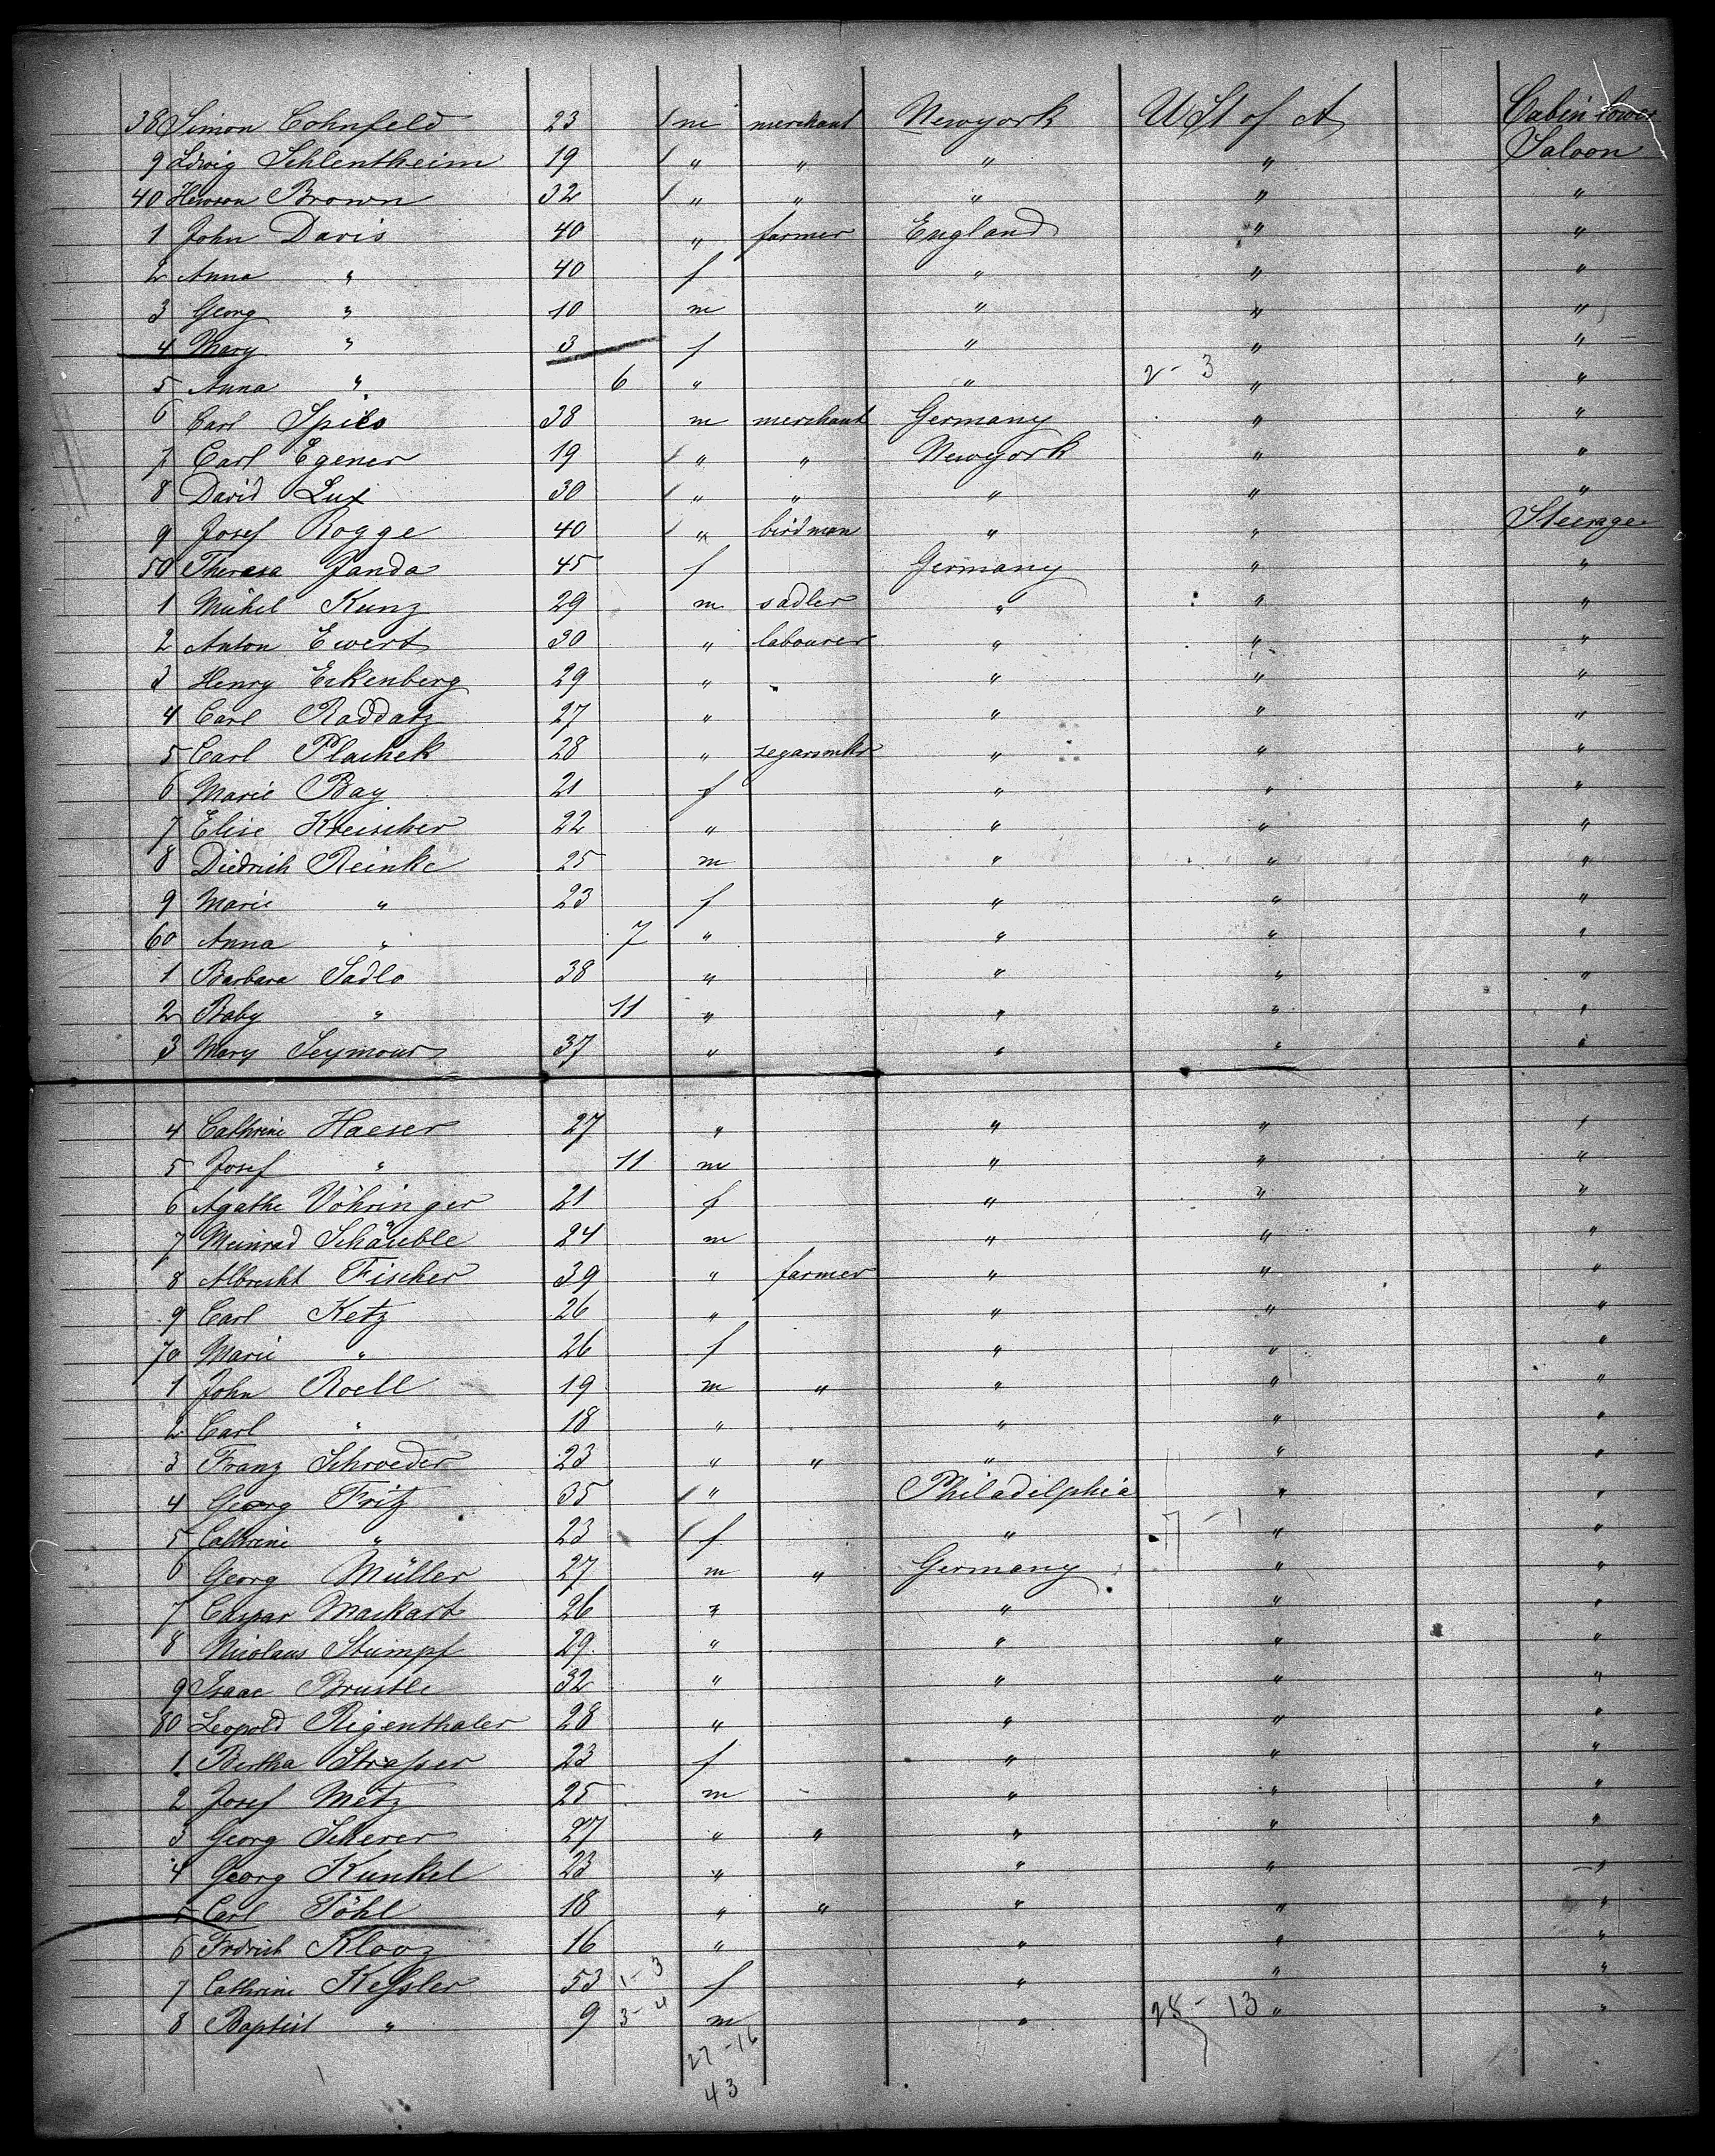 38 Simon Cohnfeld 23 / m merchant Newyork U St of A Cabin lower
9 Ldwig Schlentheim 19 / " " " " Saloon
40 Hewson Brown 32 / " " " " "
1 John Davis 40 " farmer England " "
2 Anna " 40 f " " "
3 Georg " 10 m " " "
4 Mary " 3 f " " "
5 Anna " 6 " " 2-3 " "
6 Carl Spies 38 m merchant Germany " "
7 Carl Egener 19 / " " Newyork " "
8 David Lux 30 / " " " " "
9 Josef Rogge 40 / " birdman " " Steerage
50 Theresa Janda 45 f Germany " "
1 Michel Kunz 29 m sadler " " "
2 Anton Ewert 30 " labourer " " "
3 Henry Eckenberg 29 " " " "
4 Carl Raddatz 27 " " " "
5 Carl Plachek 28 " segarmkr " " "
6 Marie Bay 21 f " " "
7 Elise Kreischer 22 " " " "
8 Diedrich Reinke 25 m " " "
9 Marie " 23 f " " "
60 Anna " 7 " " " "
1 Barbara Sadlo 38 " " " "
2 Baby " 11 " " " "
3 Mary Seymour 37 " " " "
4 Cathrine Haeser 27 " " " "
5 Josef " 11 m " " "
6 Agathe Vöhringer 21 f " " "
7 Meinrad Schäuble 24 m " " "
8 Albrecht Fischer 39 " farmer " " "
9 Carl Ketz 26 " " " "
70 Marie " 26 f " " "
1 John Roell 19 m " " " "
2 Carl " 18 " " " "
3 Franz Schroeder 23 " " " " "
4 Georg Fritz 35 / " Philadelphia " "
5 Cathrine " 23 / f " 7-1 " "
6 Georg Müller 27 m " Germany " "
7 Caspar Mackart 26 " " " "
8 Nicolaus Stumpf 29 " " " "
9 Isaac Brustle 32 " " " "
80 Leopold Rigenthaler 28 " " " "
1 Bertha Strasser 23 f " " "
2 Josef Metz 25 m " " "
3 Georg Scherer 27 " " " " "
4 Georg Kunkel 23 " " " "
5 Carl Föhl 18 " " " " "
6 Frdrich Klooz 16 " " " "
7 Cathrine Kessler 53 1-3 f " " "
8 Baptist " 9 3-4 m " 28-13 " "
27-16
43